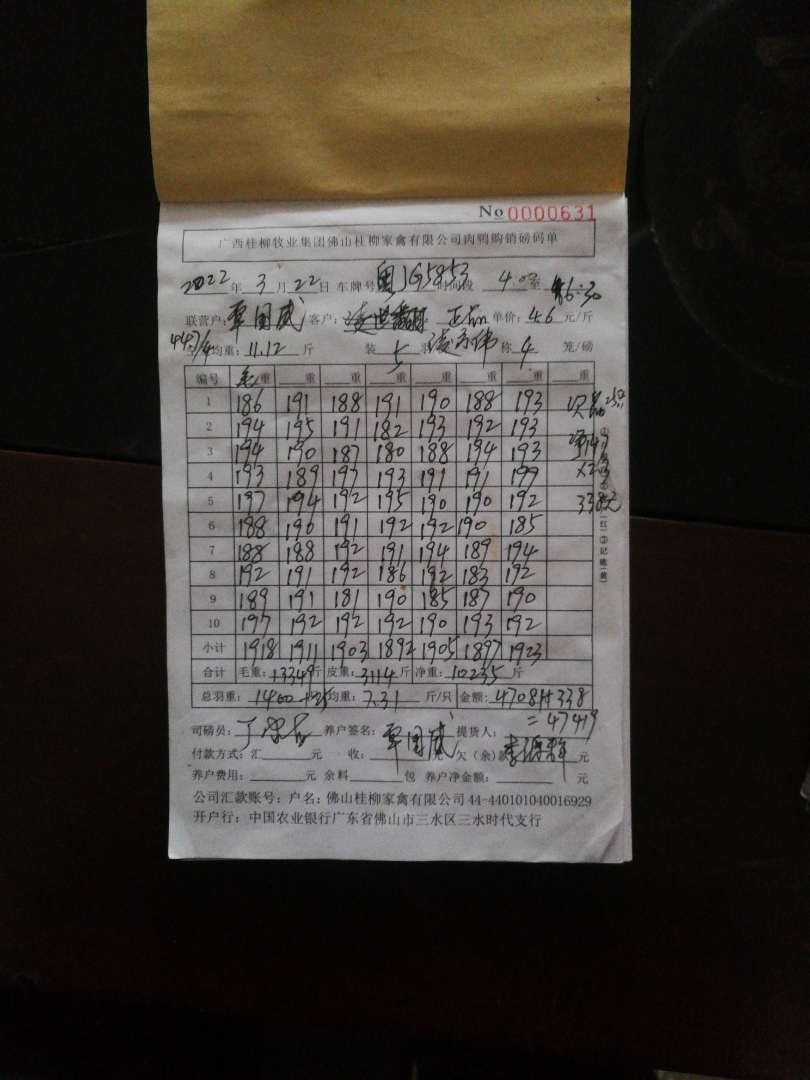 No 0000631
广西桂柳牧业集团佛山桂柳家禽有限公司肉鸭购销磅码单
2022 年 3 月 22 日 车牌号 粤JG5853 时间段 4:00 至 6:30
联营户: 覃国威 客户: 正品 单价: 4.6 元/斤
均重: 11.12 斤 装 七 称 4 笼/磅
编号 毛重 重 重 重 重 重 重 重
1 186 191 188 191 190 188 193 次品25只
2 194 195 191 182 193 192 193
3 194 190 187 180 188 194 193
4 193 189 197 193 191 191 199
5 197 194 192 195 190 190 192 338元
6 188 190 191 192 192 190 185
7 188 188 192 191 194 189 194
8 192 191 192 186 192 183 192
9 189 191 181 190 185 187 190
10 197 192 192 192 190 193 192
小计 1918 1911 1903 1892 1905 1897 1923
合计 毛重: 13349 斤 皮重: 3114 斤 净重: 10235 斤
总羽重: 1400+25 均重: 7.31 斤/只 金额: 47081+338
=47419
司磅员: 养户签名: 覃国威 提货人:
付款方式: 汇 元 收: 元 欠(余)款 元
养户费用: 元 余料 包 养户净金额: 元
公司汇款账号: 户名: 佛山桂柳家禽有限公司 44-440101040016929
开户行: 中国农业银行广东省佛山市三水区三水时代支行